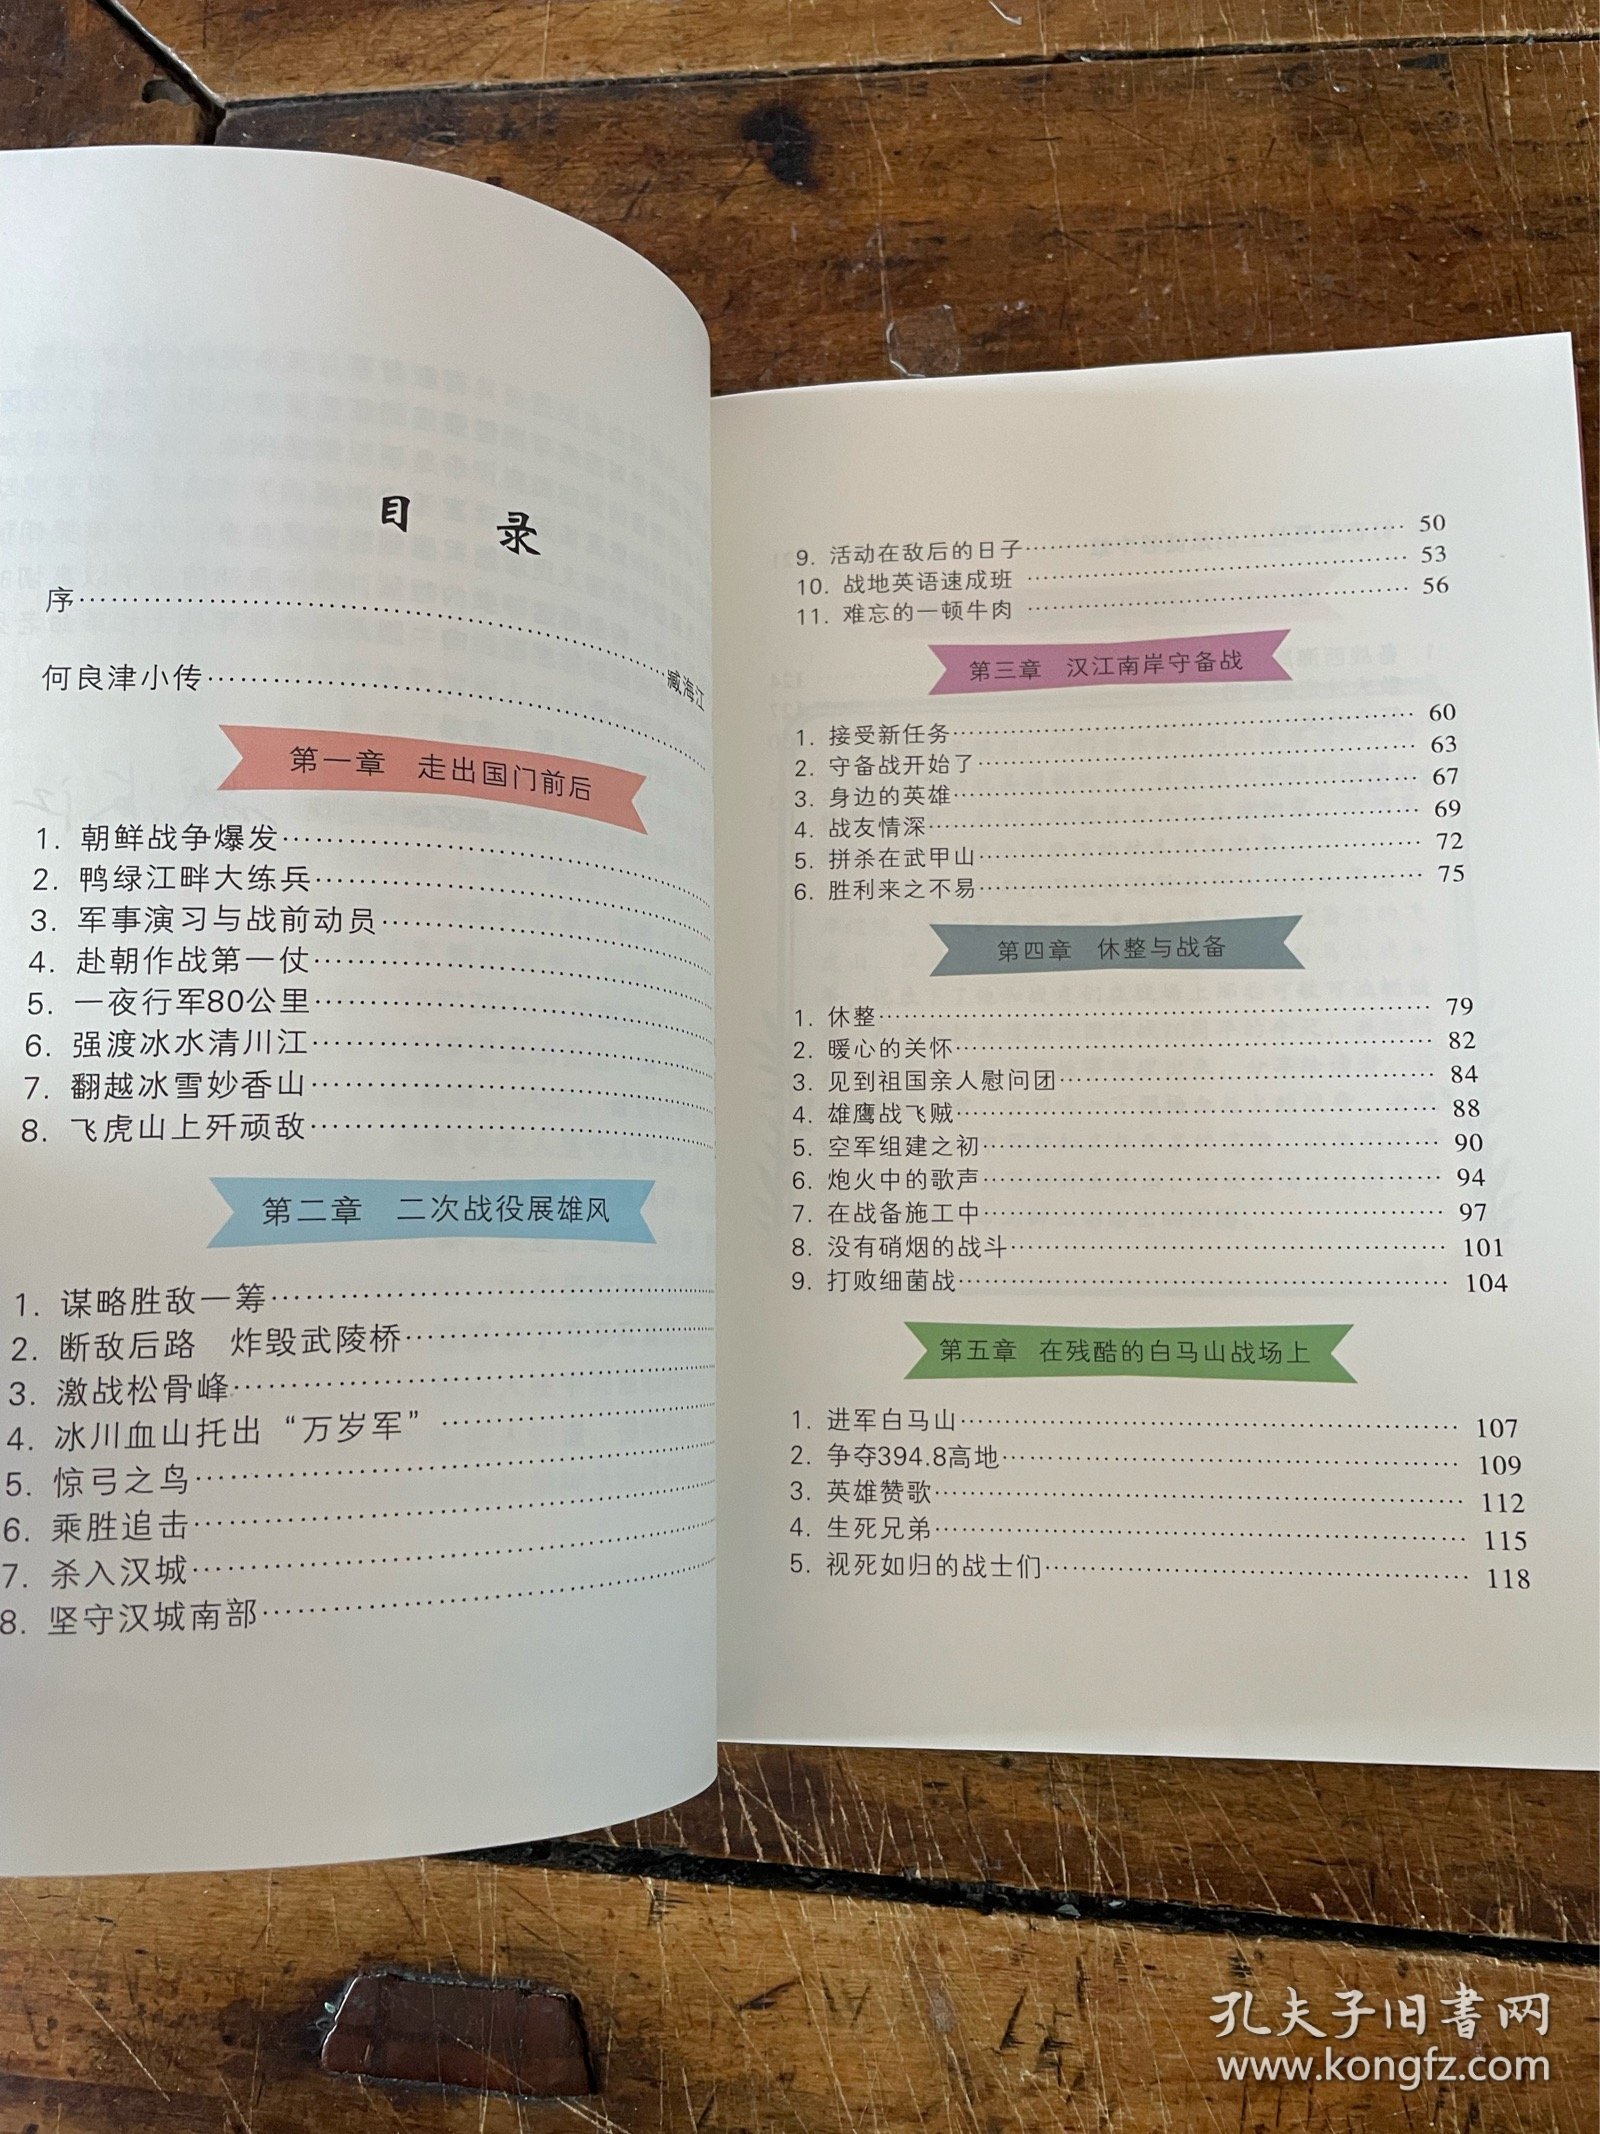 目 录
序……………………………………臧海江
何良津小传……………………………………
第一章 走出国门前后
1. 朝鲜战争爆发……………………………………
2. 鸭绿江畔大练兵……………………………………
3. 军事演习与战前动员……………………………………
4. 赴朝作战第一仗……………………………………
5. 一夜行军80公里……………………………………
6. 强渡冰水清川江……………………………………
7. 翻越冰雪妙香山……………………………………
8. 飞虎山上歼顽敌……………………………………
第二章 二次战役展雄风
1. 谋略胜敌一筹……………………………………
2. 断敌后路 炸毁武陵桥……………………………………
3. 激战松骨峰……………………………………
4. 冰川血山托出“万岁军”……………………………………
5. 惊弓之鸟……………………………………
6. 乘胜追击……………………………………
7. 杀入汉城……………………………………
8. 坚守汉城南部……………………………………
9. 活动在敌后的日子…………………………………… 50
10. 战地英语速成班…………………………………… 53
11. 难忘的一顿牛肉…………………………………… 56
第三章 汉江南岸守备战
1. 接受新任务…………………………………… 60
2. 守备战开始了…………………………………… 63
3. 身边的英雄…………………………………… 67
4. 战友情深…………………………………… 69
5. 拼杀在武甲山…………………………………… 72
6. 胜利来之不易…………………………………… 75
第四章 休整与战备
1. 休整…………………………………… 79
2. 暖心的关怀…………………………………… 82
3. 见到祖国亲人慰问团…………………………………… 84
4. 雄鹰战飞贼…………………………………… 88
5. 空军组建之初…………………………………… 90
6. 炮火中的歌声…………………………………… 94
7. 在战备施工中…………………………………… 97
8. 没有硝烟的战斗…………………………………… 101
9. 打败细菌战…………………………………… 104
第五章 在残酷的白马山战场上
1. 进军白马山…………………………………… 107
2. 争夺394.8高地…………………………………… 109
3. 英雄赞歌…………………………………… 112
4. 生死兄弟…………………………………… 115
5. 视死如归的战士们…………………………………… 118
孔夫子旧书网
www.kongfz.com